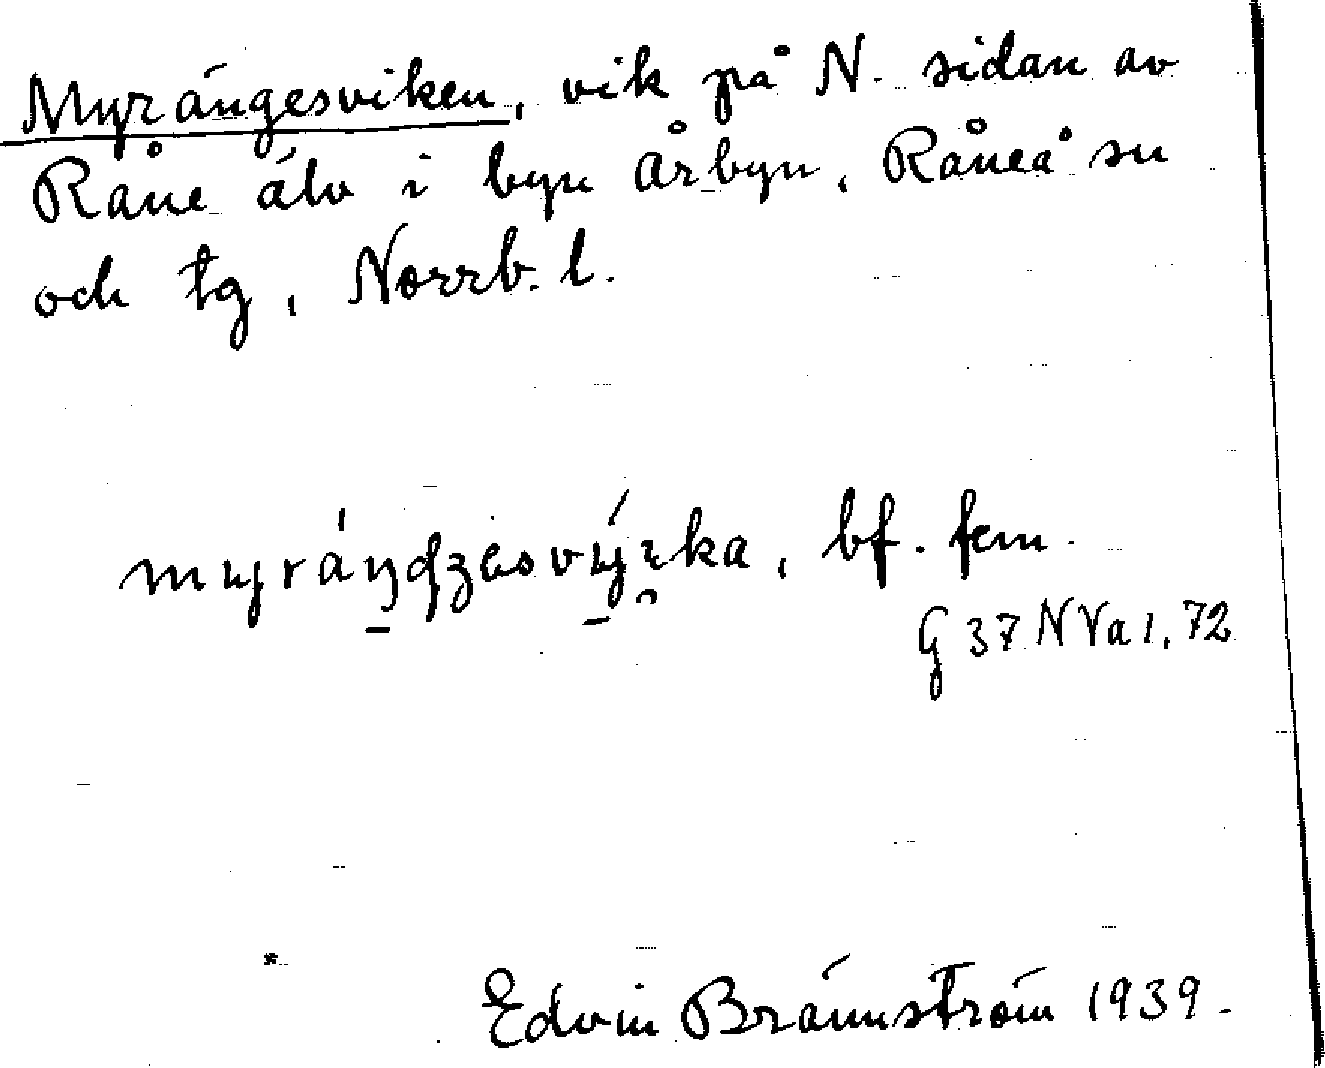 Myrängesviken, vik på N. sidan av
Råne älv i byn Årbyn, Råneå sn
och tg, Norrb. l.
myráŋdzesvýi̯ka, bf. fem.
G 37 N Va 1, 72
Edvin Brännström 1939.